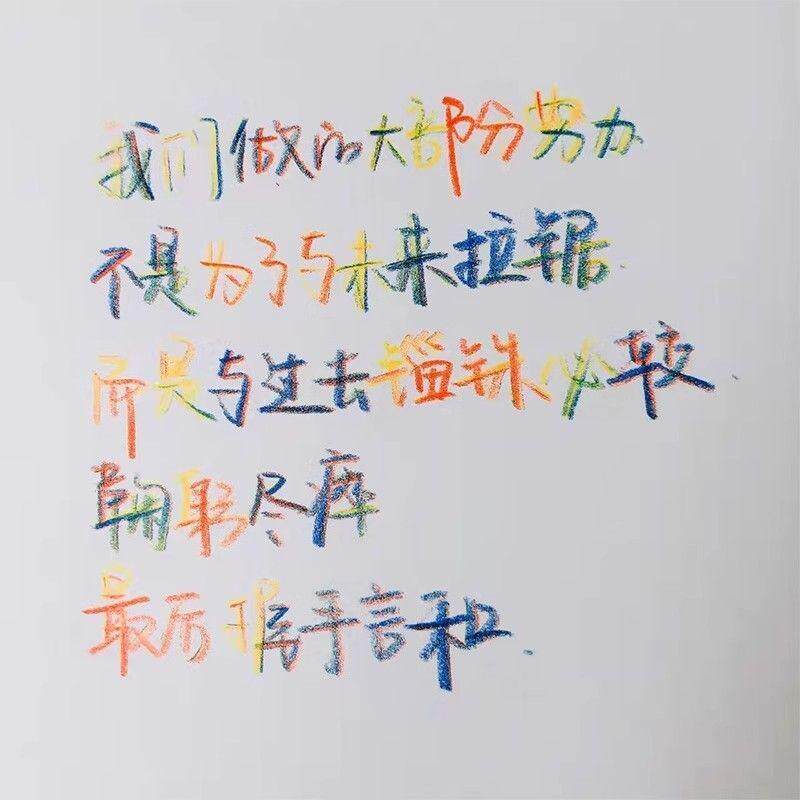 我们做的大部份努力
不是为了与未来拉锯.
而是与过去锱铢必较.
鞠躬尽瘁
最后握手言和.